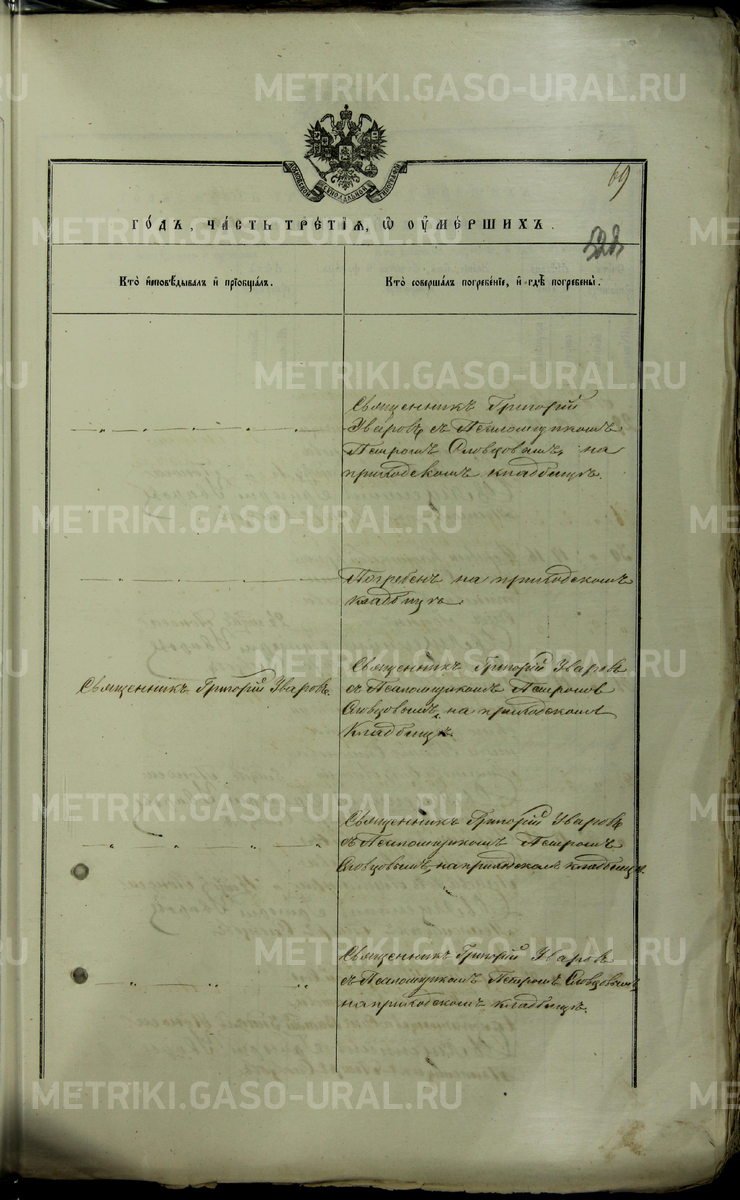 METRIKI.GASO-URAL.RU
69
МОСКОВСКОЙ СѴНОДАЛЬНОЙ ТИПОГРАФІИ
ГО́ДЪ, ЧА́СТЬ ТРЕ́ТІѦ, Ѡ ОУ҆МЕ́РШИХЪ.
528
Кто̀ и҆сповѣ́дывалъ и҆ прїѡбща́лъ.
Кто̀ соверша́лъ погребе́нїе, и҆ гдѣ̀ погребены̀.
Священникъ Григорій
Уваровъ съ Псаломщикомъ
Петромъ Словцовымъ, на
приходскомъ кладбищѣ.
Погребенъ на приходскомъ
кладбищѣ
Священникъ Григорій Уваровъ.
Священникъ Григорій Уваровъ
съ Псаломщикомъ Петромъ
Словцовымъ, на приходскомъ
кладбищѣ.
Священникъ Григорій Уваровъ
съ Псаломщикомъ Петромъ
Словцовымъ, на приходскомъ кладбищѣ.
Священникъ Григорій Уваровъ
съ Псаломщикомъ Петромъ Словцовымъ,
на приходскомъ кладбищѣ.